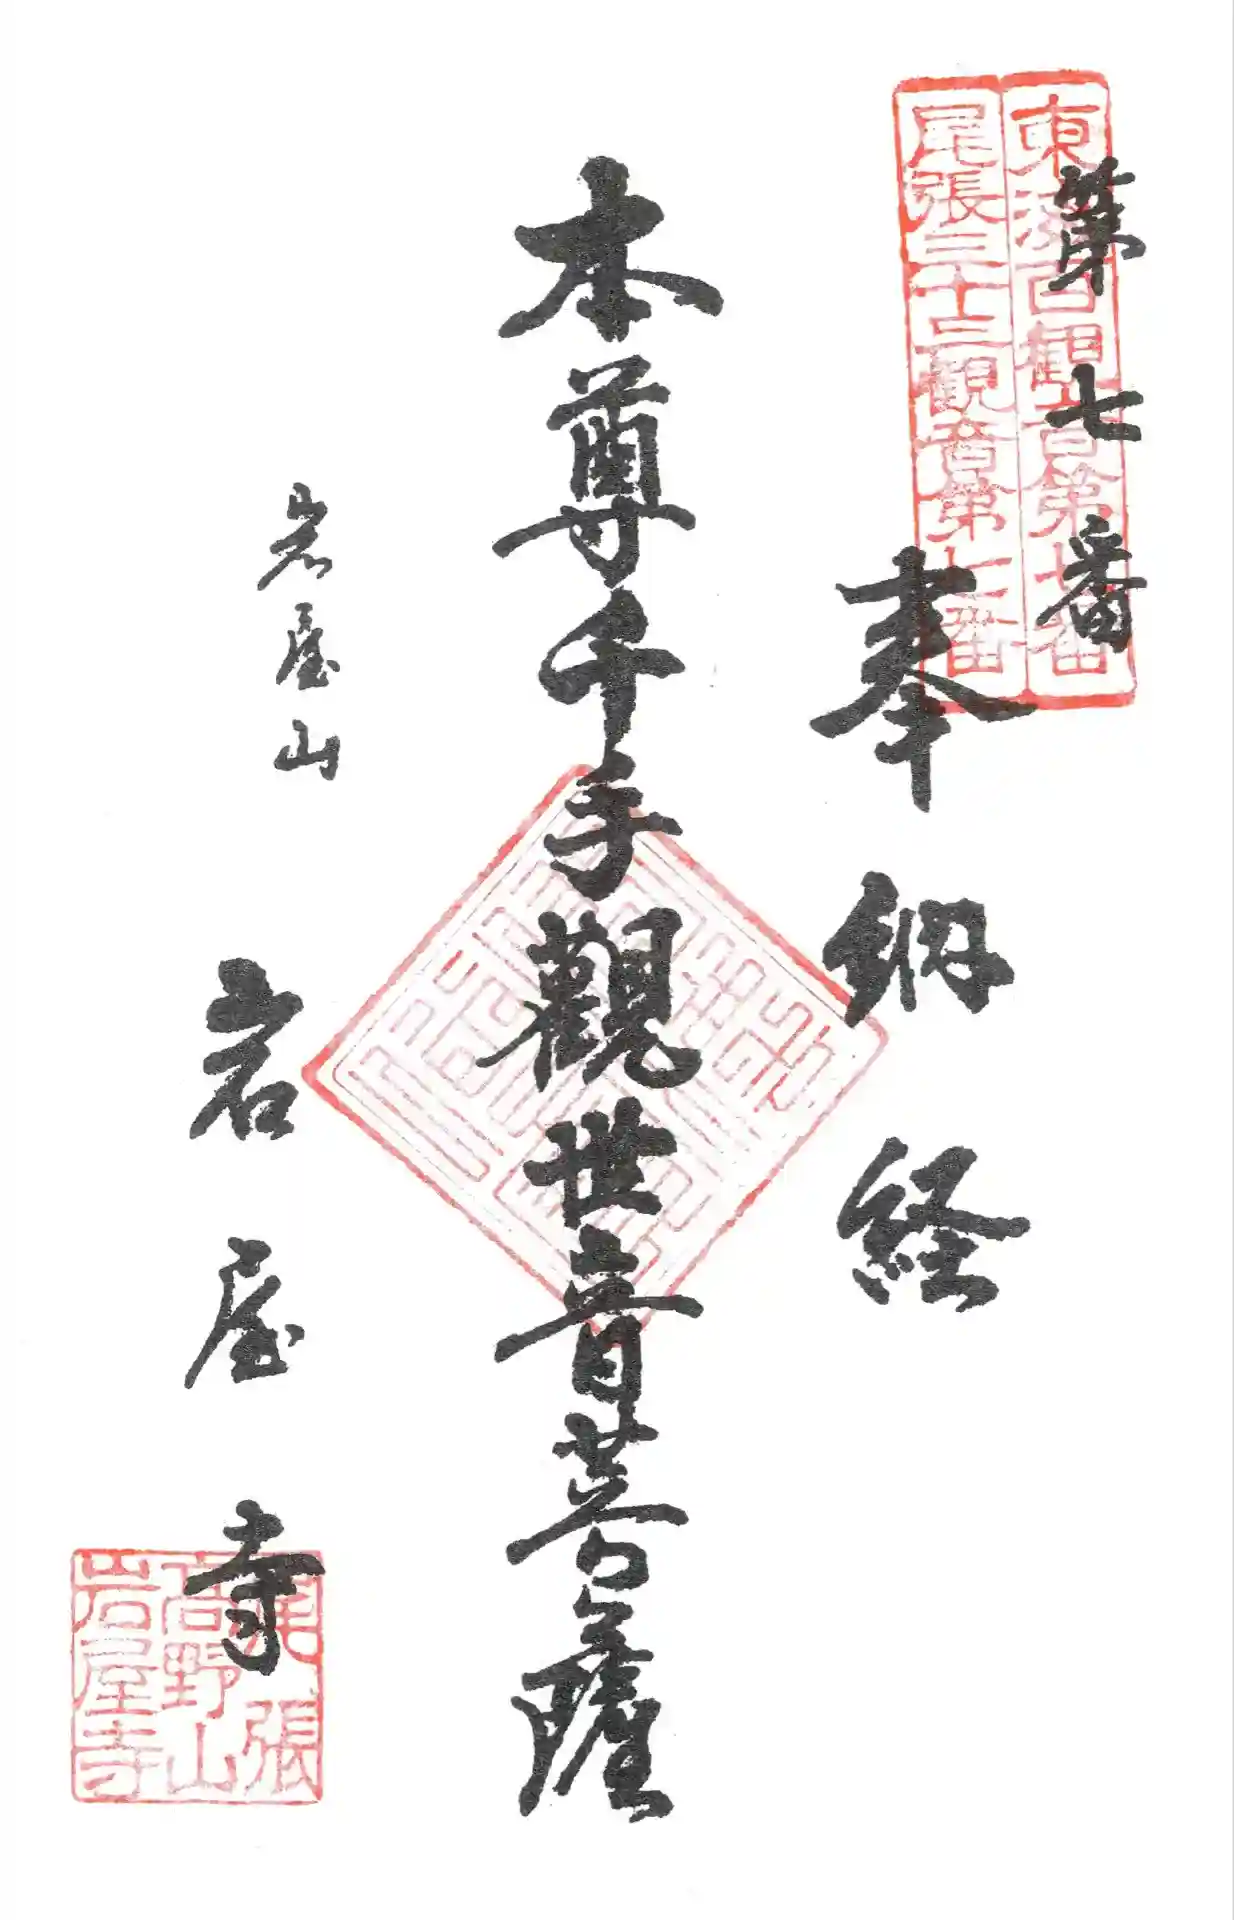 第七番
東海百観音第七番
尾張三十三観音第七番
奉納経
本尊千手觀世音菩薩
岩屋山
岩屋寺
尾張
高野山
岩屋寺